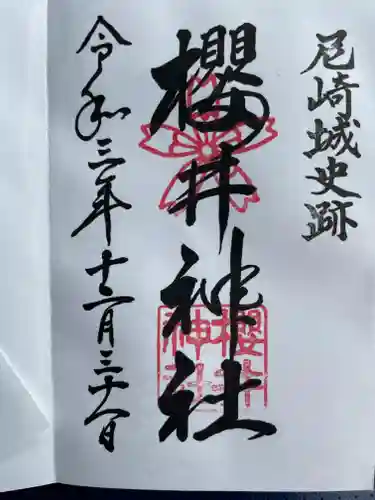 尼崎城史跡
櫻井神社
櫻井神社
令和三年十二月三十一日